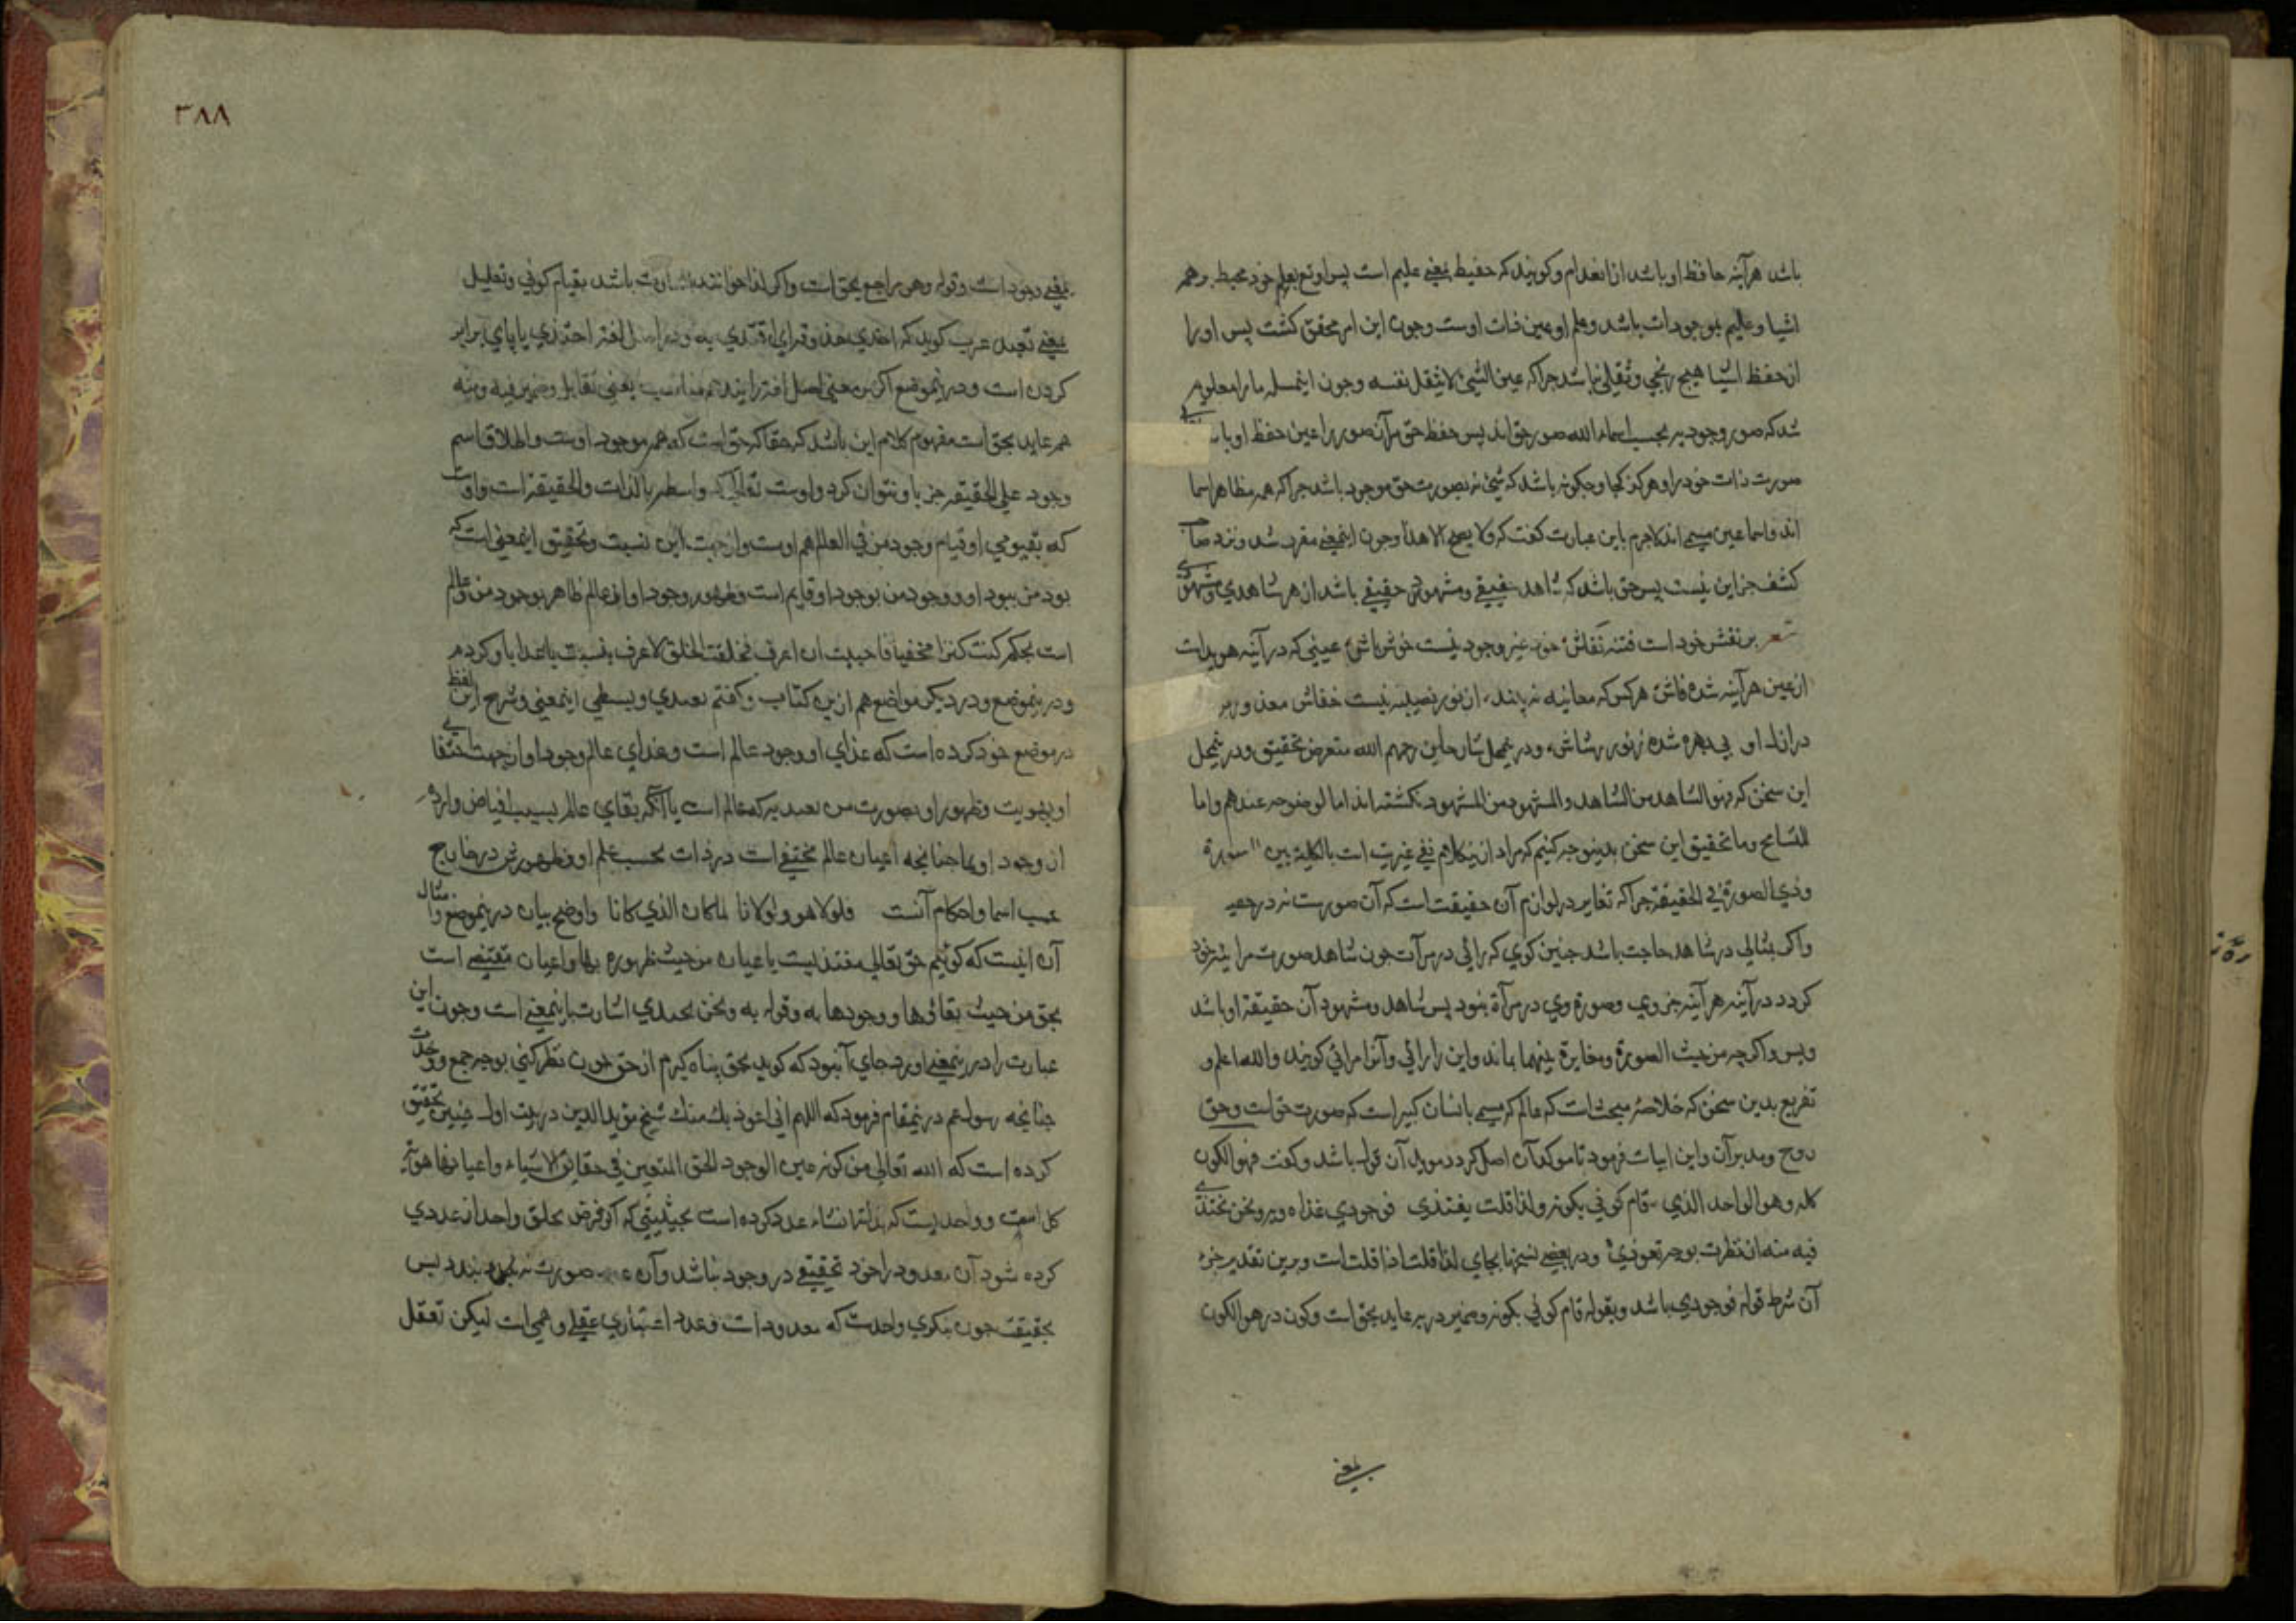 باشد هرآینه حافظ او باشد از انعدام وکویند که حفیظ بمعنی علیم است پس او تع بعلم خود محیط برهمه
اشیا وعلیم بموجودات باشد وعلم او عین ذات اوست وجون این امر محقق کشت پس او را
از حفظ اشیا هیج رنجی وثقلی نباشد جراکه عین الشیئ لا یثقل نفسه وجون اینمسله ما را معلوم
شد که صور وجودیه بحسب اسماء الله صور حق اند پس حفظ حق مر آن صور را عین حفظ او باشد
صورت ذات خود را وهرکز کجا وجکونه باشد که شیئ نه بصورت حق موجود باشد جراکه همه مظاهر اسما
اند واسما عین مسمی اند لاجرم باین عبارت کفت که ولا یصح الا هذا وجون اینمعنی مقرر شد ونزد صاحب
کشف جز این نیست پس حق باشد که شاهد حقیقی ومشهود حقیقی باشد از هر شاهدی ومشهودی
شعر بر نقش خود است فتنه نقاش خود غیر وجود نیست خوش باش عینی که در آینه هویداست
از عین هرآینه شده فاش هرکس که معاینه نه بیند از نور نصیبه نیست خفاش معذور بود
در ازل او بی بهره شده ز نور رشاش ودرینمحل شارحان رحمهم الله متعرض تحقیق ودرینمحل
این سخن که فهو الشاهد من الشاهد والمشهود من المشهود نکشته اند اما لوضوحه عندهم واما
للتسامح وما تحقیق این سخن بدینوجه کنیم که مراد ازینکلام نفی غیریت است بالکلیة بین الصورة
وذی الصورة فی الحقیقة جراکه تغایر در لوازم آن حقیقت است که آن صورت نه در
واکر بمثالی در شاهد حاجت باشد جنین کوی که رائی در مرآت جون شاهد صورت مرایته خود
کردد در آینه هرآینه جز وی وصورة وی در مرآة نبود پس شاهد ومشهود آن حقیقة او باشد
وبس واکرجه من حیث الصورة ومغایرة بینهما بماند واین را رائی وآنرا مرائی کویند والله اعلم و
تفریع بدین سخن که خلاصهٔ مبحث است که عالم که مسمی بانسان کبیر است که صورت حق است وحق
روح ومدبر آن واین ابیات فرمود تا موکد آن اصل کردد ومؤید آن قول باشد وکفت فهو الکون
کله وهو الواحد الذی قام کونی بکونه ولذا قلت یغتذی فوجودی غذاه وبه ونحن نحتذی
فیه منه ان نظرت بوجه تعوذی ودر بعضی نسخها بجای لذا قلت اذا قلت است وبرین تقدیر جزء
آن شرط قوله فوجودی باشد وبقوله قام کونی بکونه وضمیر در به عاید بحق است وکون در هو الکون
بمعنی
٣٨٨
بمعنی وجود است وقوله وهو راجع بحق است واکر لذا خوانند اشارت باشد بقیام کونی وتعلیل
بمعنی تجدد عرب کوید که احتذی حذوه ای اقتدی به ودر اصل لغة احتذی با پای برابر
کردن است ودرینموضع اکر بر معنی اصل لغة رانند هم مناسب یعنی تقابل وضمیر فیه ومنه
هم عاید بحق است مفهوم کلام این باشد که حقا که حق است که همه موجود اوست واطلاق اسم
وجود علی الحقیقه جز باو نتوان کرد واوست تعالی که واسطه بالذات والحقیقة است واوست
که بقیومی او قیام وجود من فی العالم هم اوست واز جهت این نسبت وتحقیق اینمعنی است که
بود من ببود او ووجود من بوجود او قایم است وظهور وجود او در عالم ظاهر بوجود من وعالم
است بحکم کنت کنزا مخفیا فاحببت ان اعرف فخلقت الخلق لاعرف نسبت باغذا باو کردم
ودرینموضع ودر دیکر مواضع هم ازین کتاب وکفتم تعمدی وبسطی اینمعنی وشرح این لفظ
در موضع خود کرده است که غذای او وجود عالم است وغذای عالم وجود او از جهت اختفای
او بهویت وظهور او بصورت من تعبد به که عالم است یا آنکه بقای عالم بسبب افیاض وارد
آن وجود او بما جنانجه اعیان عالم مختفی است در ذات بحسب علم او وظهورش در خارج
بحسب اسما واحکام آنست فلولا هو ولولانا لما کان الذی کانا واوضح بیان درینموضع ومثال
آن اینست که کوئیم حق تعالی مغتذیست باعیان من حیث ظهوره بها واعیان مغتذی است
بحق من حیث بقائها ووجودها به وقوله به ونحن نحتذی اشارت باینمعنی است وجون این
عبارت را درینمعنی اورد جای آنبود که کوید بحق پناه کیرم از حق جون نظر کنی بوجه جمع ووحدت
جنانجه رسول عم درینمقام فرمود که اللهم انی اعوذ بک منک شیخ مؤید الدین در بیت اول جنین تحقیق
کرده است که الله تعالی من کونه عین الوجود الحق المتعین فی حقایق الاشیاء واعیانها هو
کل است وواحدیست که بذاتها انشاء عدد کرده است بحیثیتی که اکر فرض تخلف واحد از عددی
کرده شود آن معدود را خود تحقیقی در وجود نباشد وآن صورت نه بندد پس
بحقیقت جون بنکری واحدست که معدود است وعدد اعتباری عقلی وهمی است لیکن تعقل